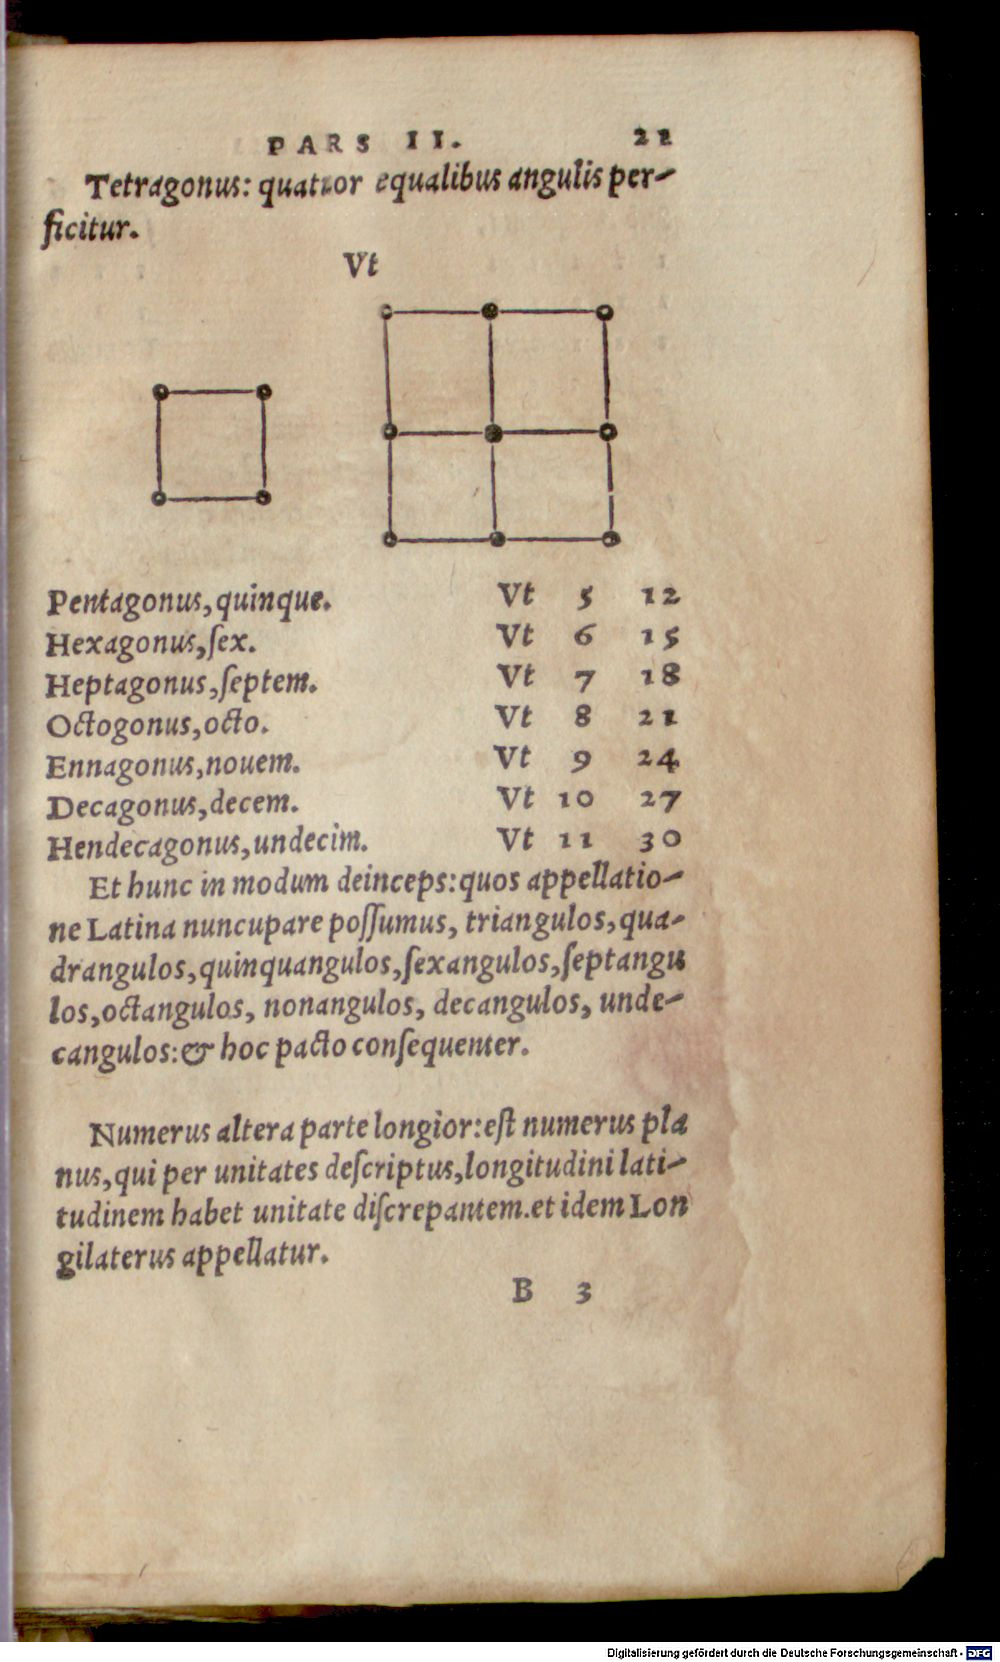 PARS II. 21
Tetragonus: quatuor equalibus angulis per-
ficitur.
Vt
Pentagonus, quinque. Vt 5 12
Hexagonus, ſex. Vt 6 15
Heptagonus, ſeptem. Vt 7 18
Octogonus, octo. Vt 8 21
Ennagonus, nouem. Vt 9 24
Decagonus, decem. Vt 10 27
Hendecagonus, undecim. Vt 11 30
Et hunc in modum deinceps: quos appellatio-
ne Latina nuncupare poſſumus, triangulos, qua-
drangulos, quinquangulos, ſexangulos, ſeptangu
los, octangulos, nonangulos, decangulos, unde-
cangulos: & hoc pacto conſequenter.
Numerus altera parte longior: eſt numerus pla
nus, qui per unitates deſcriptus, longitudini lati-
tudinem habet unitate diſcrepantem. et idem Lon
gilaterus appellatur.
B 3
Digitalisierung gefördert durch die Deutsche Forschungsgemeinschaft - DFG